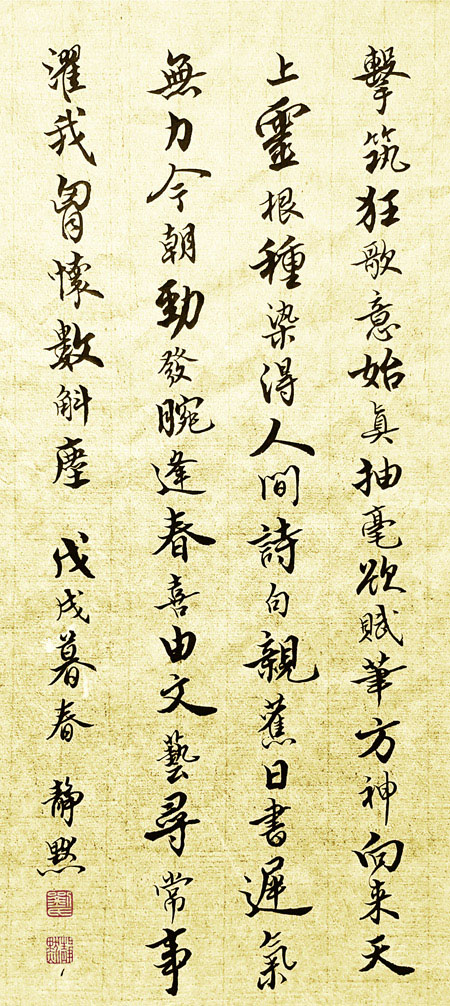 擊筑狂歌意始真抽毫欲賦筆方神向来天
上靈根種染得人間詩句親蕉日書遲氣
無力今朝勁發腕逢春喜由文藝尋常事
濯我胷懷數斛塵 戊戌暮春 靜默